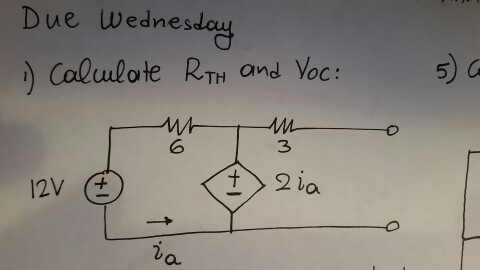 Due Wednesday
1) Calculate RTH and Voc:
5)
6
3
12V
+
-
+
-
2ia
ia